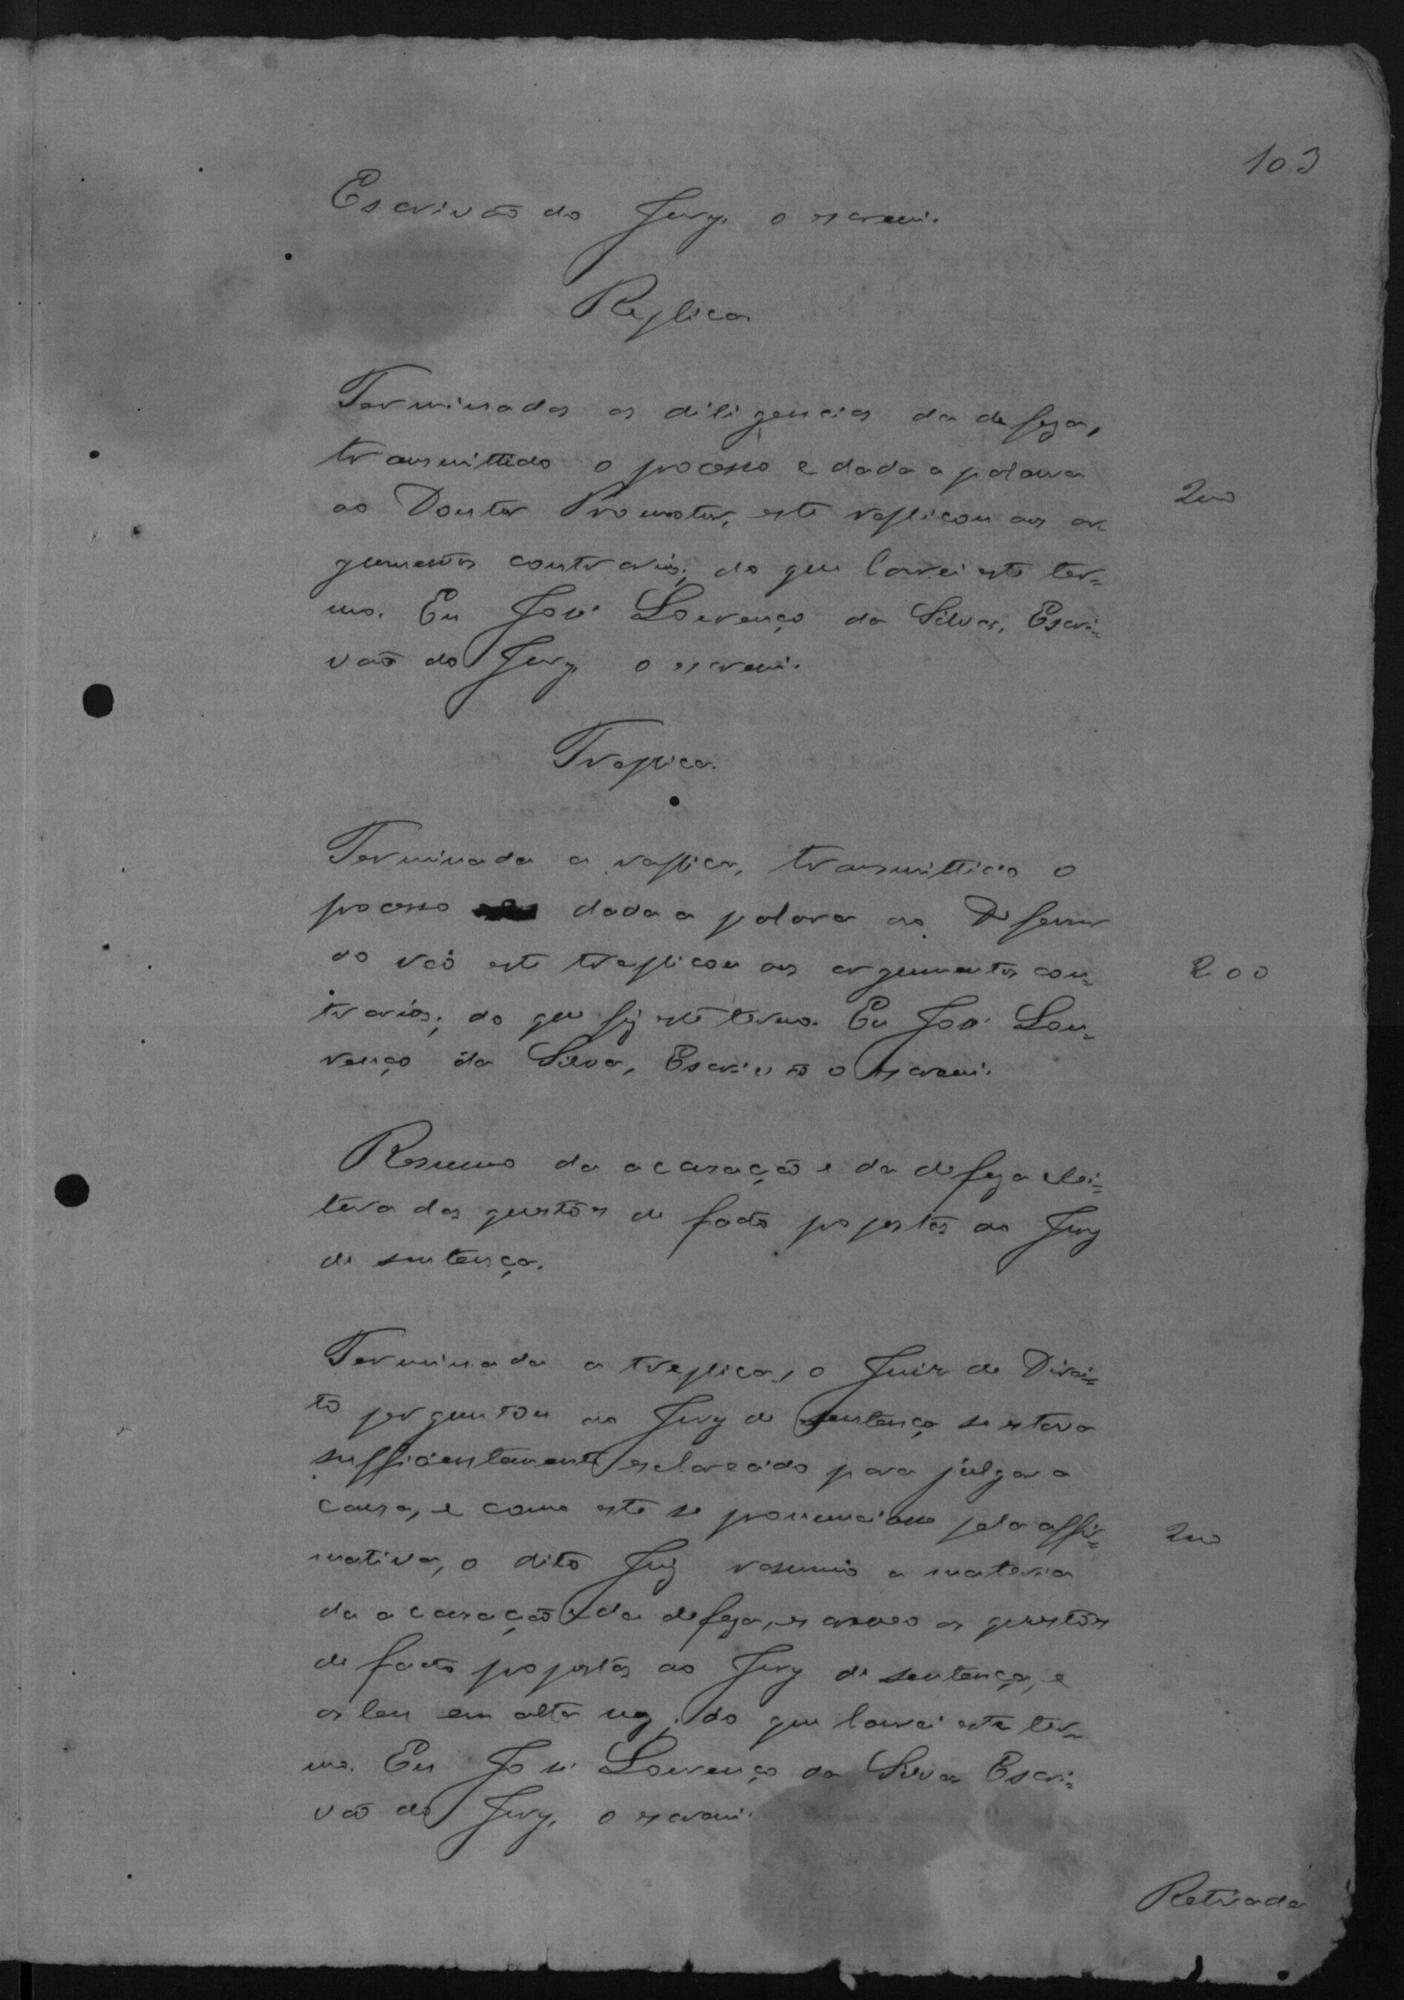 103
Escrivão do Jury, o escrevi.
Replica
Terminadas as diligencias da defeza,
transmittido o processo e dada a palavra
200
ao Doutor Promotor, este replicou aos ar
gumentos contrarios; do que lavrei este ter=
mo. Eu José Lourenço da Silva, Escri=
vão do Jury, o escrevi.
Treplica.
Terminada a replica, transmittido o
processo dada a palavra ao Defensor
do réo este treplicou aos argumentos con=
200
trarios; do que fiz este termo. Eu José Lou=
renço da Silva, Escrivão o escrevi.
Resumo da accusação e da defeza e lei=
tura das questões de facto propostas ao Jury
de sentença.
Terminada a treplica, o Juiz de Direi=
to perguntou ao Jury de sentença se estava
sufficientemente esclarecido para julgar a
causa, e como este se pronunciasse pela affir=
200
mativa, o dito Juiz resumio a materia
da accusação e da defeza, escreveo as questões
de facto propostas ao Jury de sentença, e
as leu em alta voz; do que lavrei este ter=
mo. Eu José Lourenço da Silva Escri=
vão do Jury, o escrevi.
Retirada